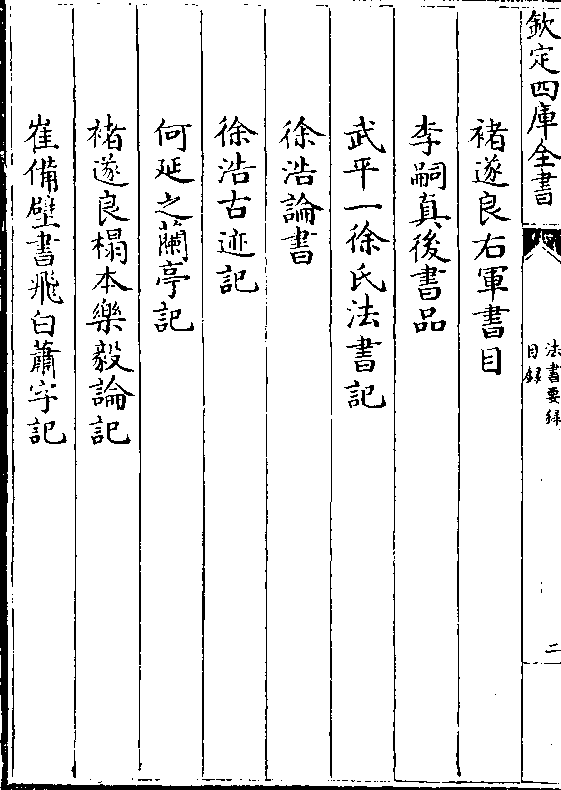 欽定四庫全書
法書要錄
目錄
二
褚遂良右軍書目
李嗣真後書品
武平一徐氏法書記
徐浩論書
徐浩古迹記
何延之蘭亭記
褚遂良榻本樂毅論記
崔備壁書飛白蕭字記